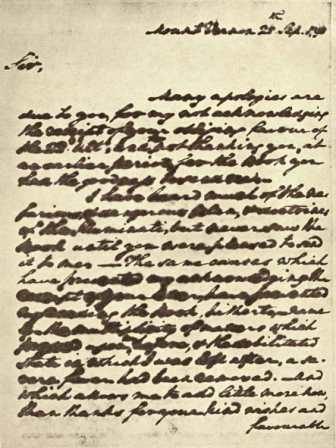 Mount Vernon 25th Sep. 1798
Sir,
Many apologies are
due to you, for my not acknowledging
the receipt of your obliging favour of
the 22d Ulto, & for not thanking you, at
an earlier period, for the Book you
had the goodness to send me.
I have heard much of the ne-
farious & dangerous plan, & doctrines
of the Illuminati, but never saw the
Book until you were pleased to send
it to me. — The same causes which
have prevented my acknowledging the
receipt of your letter, have prevented
my reading the Book, hitherto; namely
the multiplicity of matters which
pressed upon me before, & the debilitated
state in which I was left after, a se-
vere fever had been removed. And
which allows me to add little more now,
than thanks for your kind wishes and
favourable